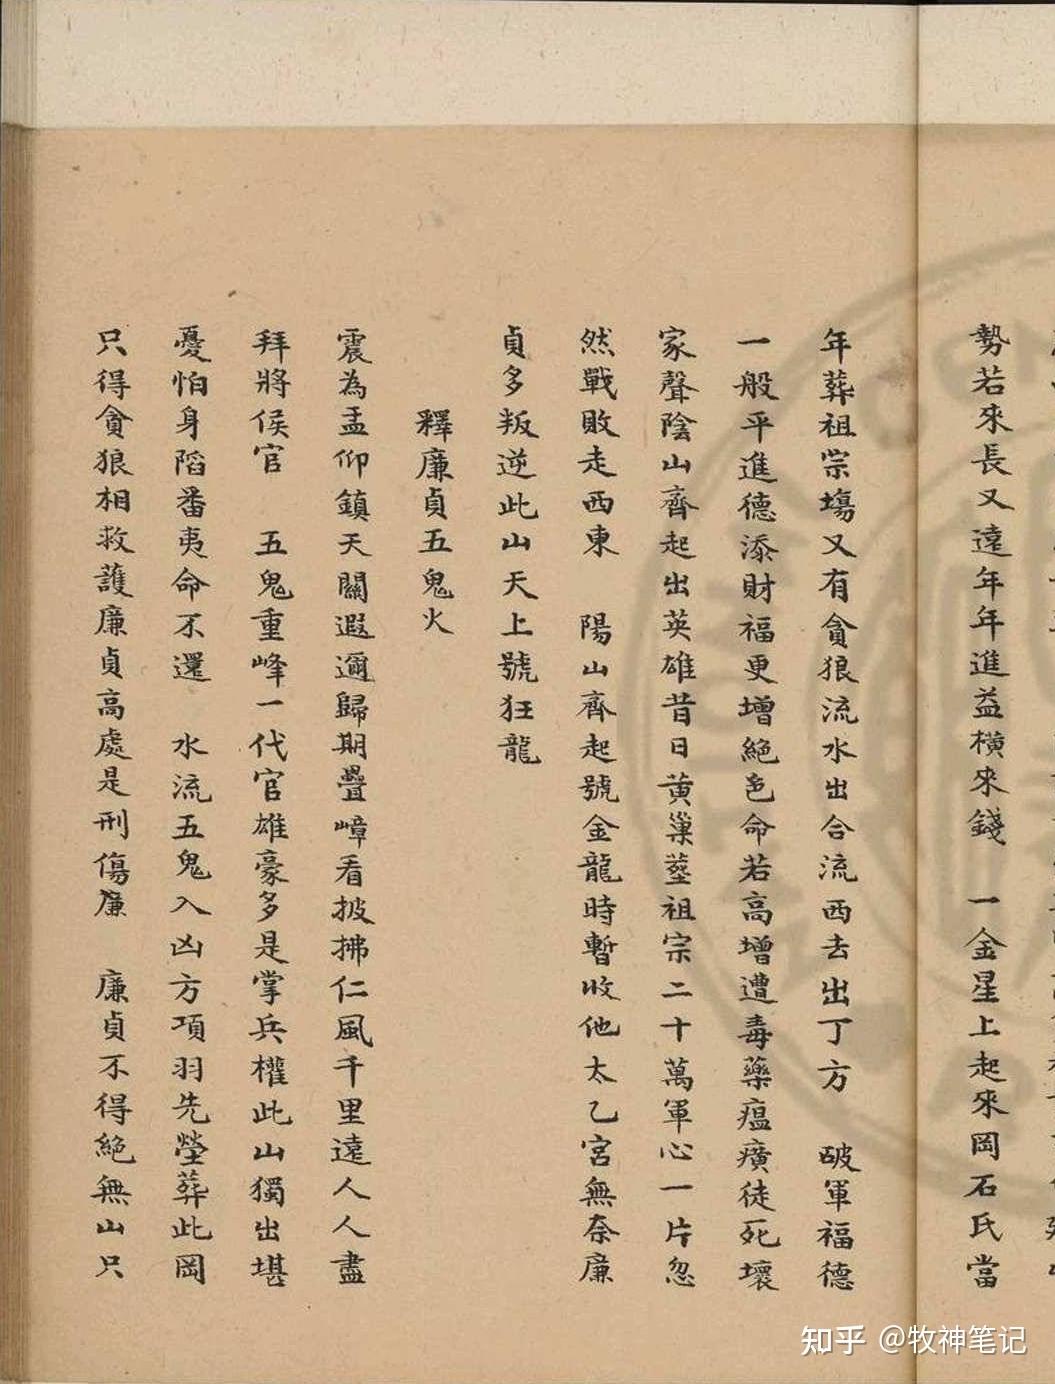 勢若來長又遠年年進益橫來錢　一金星上起來岡石氏當
年葬祖崇塲又有貪狼流水出合流西去出丁方　破軍福德
一般平進德添財福更增絕色命若高增遭毒藥瘟癀徒死壞
家聲陰山齊起出英雄昔日黃巢塟祖宗二十萬軍心一片忽
然戰敗走西東　陽山齊起號金龍時暫收他太乙宮無奈廉
貞多叛逆此山天上號狂龍
釋廉貞五鬼火
震為孟仰鎮天關遐邇歸期疊嶂看披拂仁風千里遠人人盡
拜將侯官　五鬼重峰一代官雄豪多是掌兵權此山獨出堪
憂怕身陷番夷命不還　水流五鬼入凶方項羽先塋葬此岡
只得貪狼相救護廉貞高處是刑傷廉　廉貞不得絕無山只
知乎 @牧神笔记